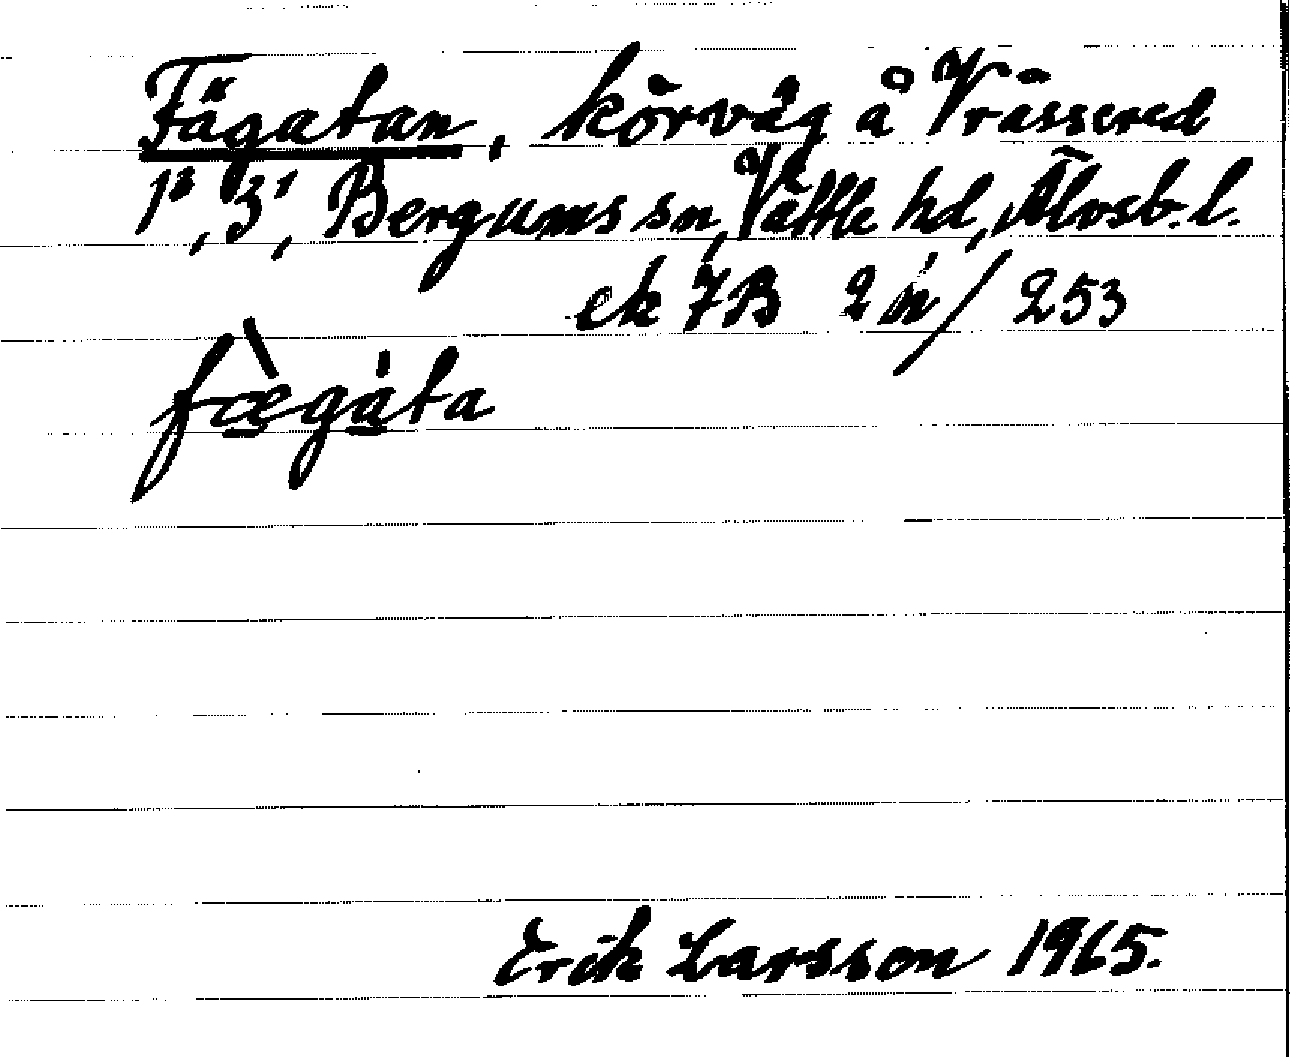 Fägatan, körväg å Vrässered
1², 3¹, Bergums sn, Vättle hd, Älvsb. l.
ek 7B 2 h / 253
fæ̀gáta
Erik Larsson 1965.